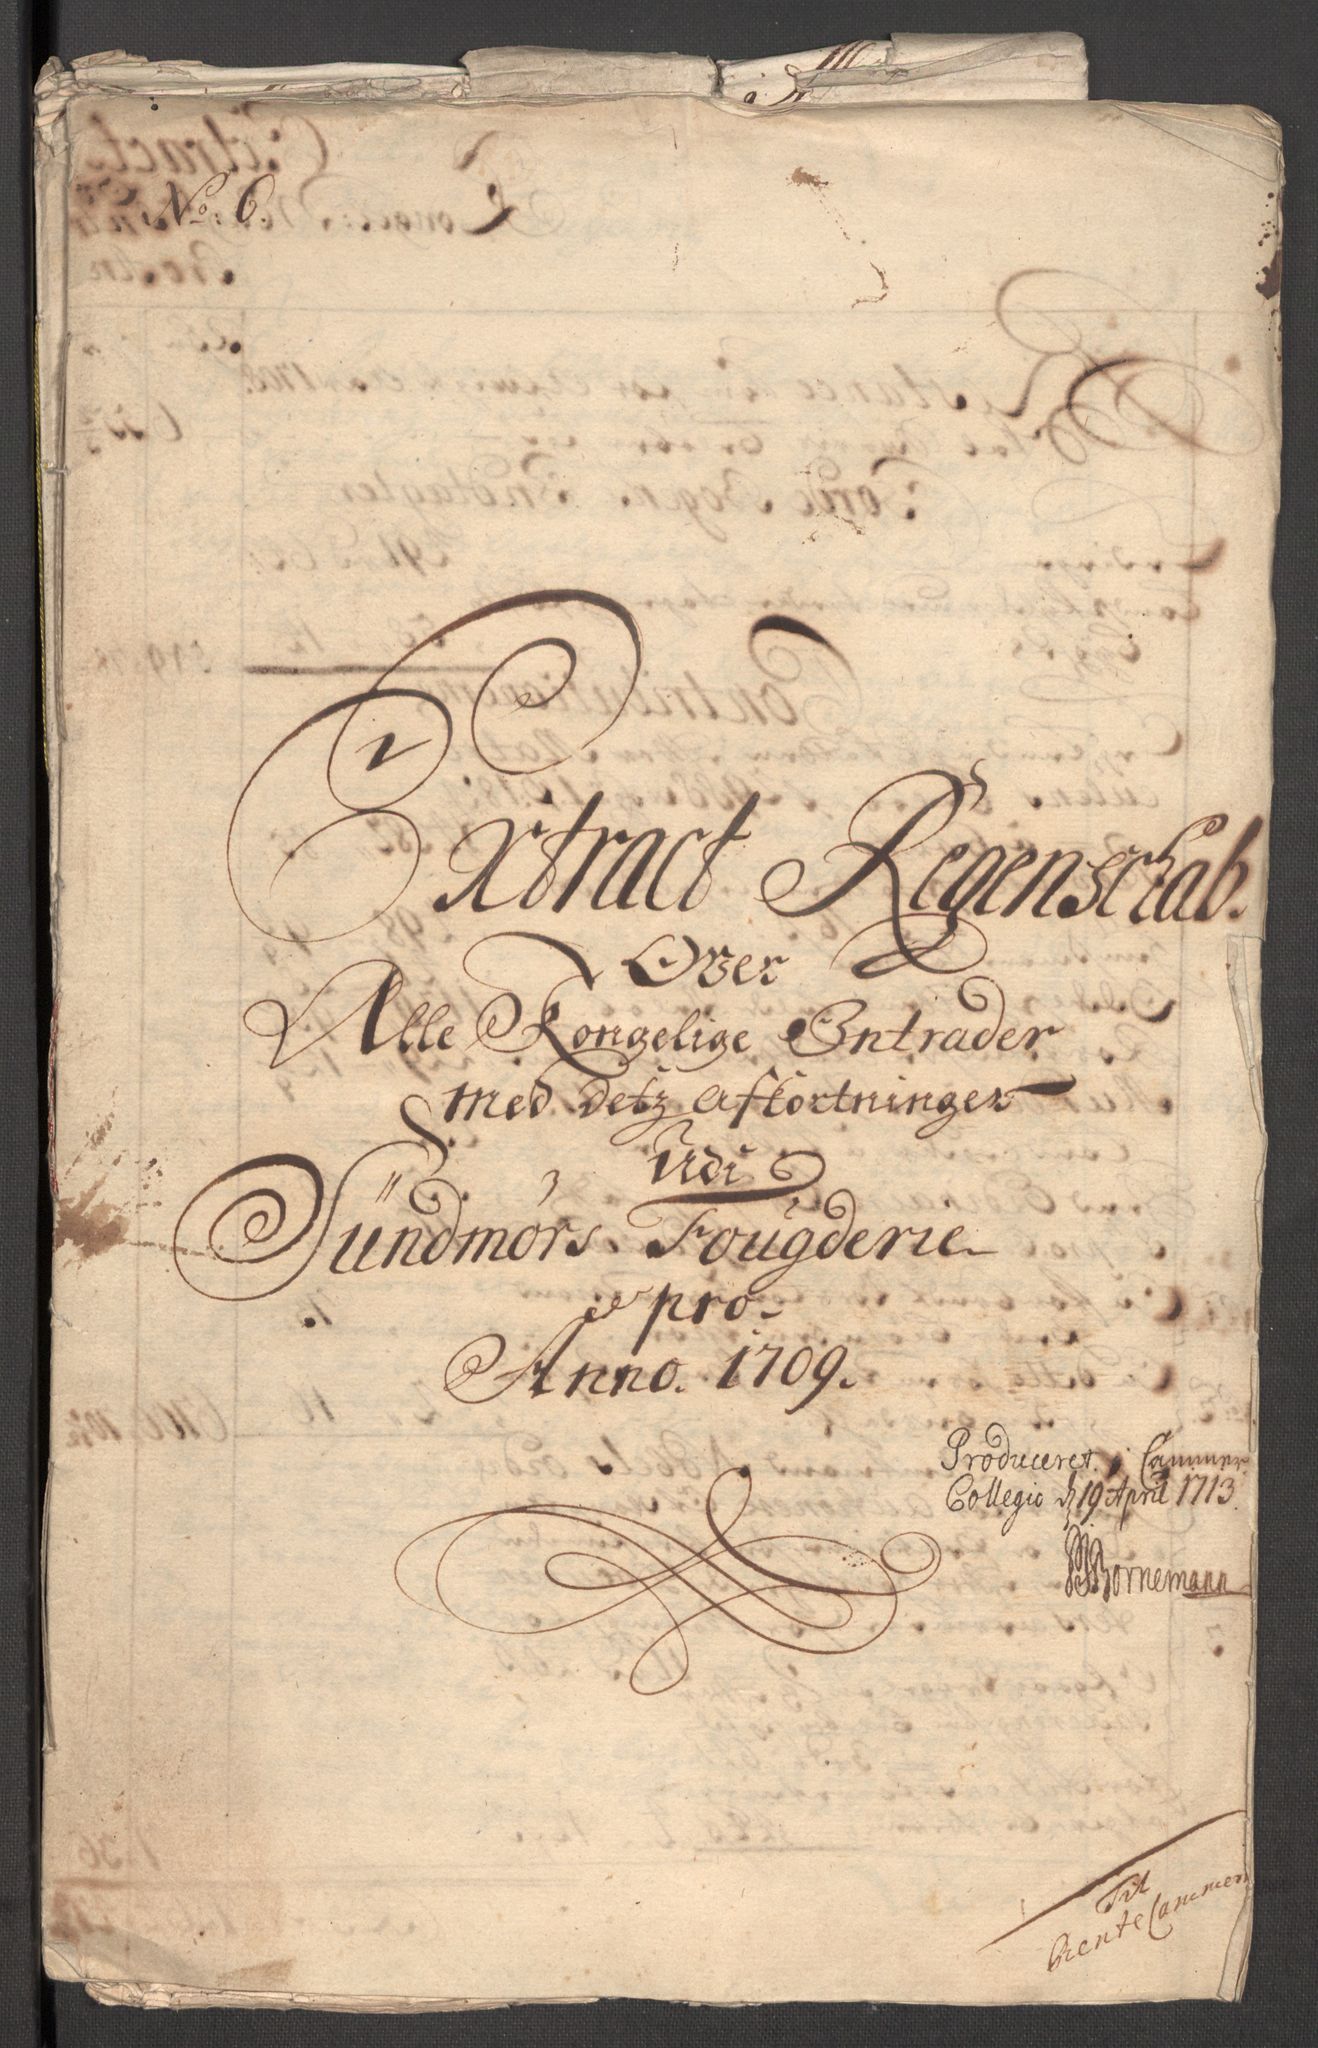 No: 6.
Extract Regenschab.
Over
Alle Kongelige Intrader
med detz afkortninger
Udi
Sündmørs Fougderie
pro.
Anno. 1709.
Produceret i Cammer
Collegio d 19 April 1713.
Bornemann
Til
Rente Cammer